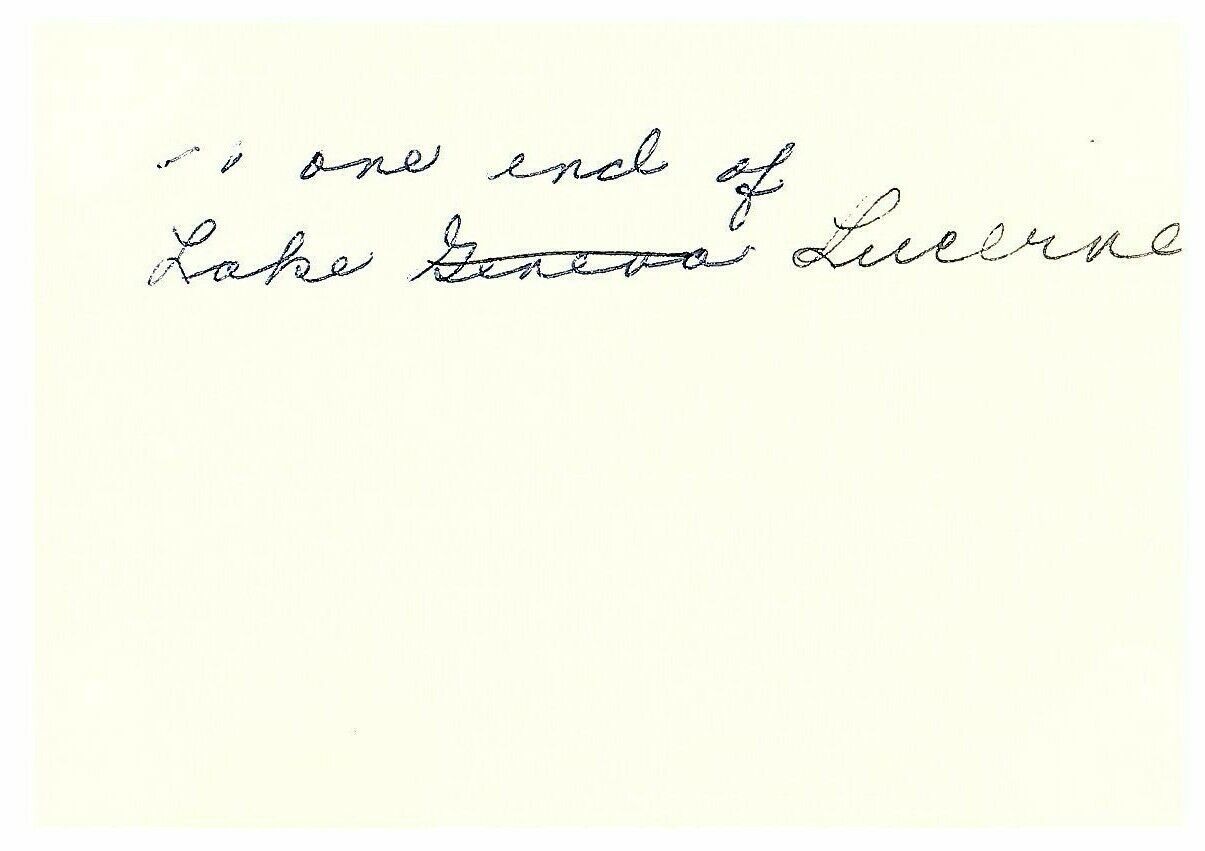 one end of
Lake Geneva Lucerne